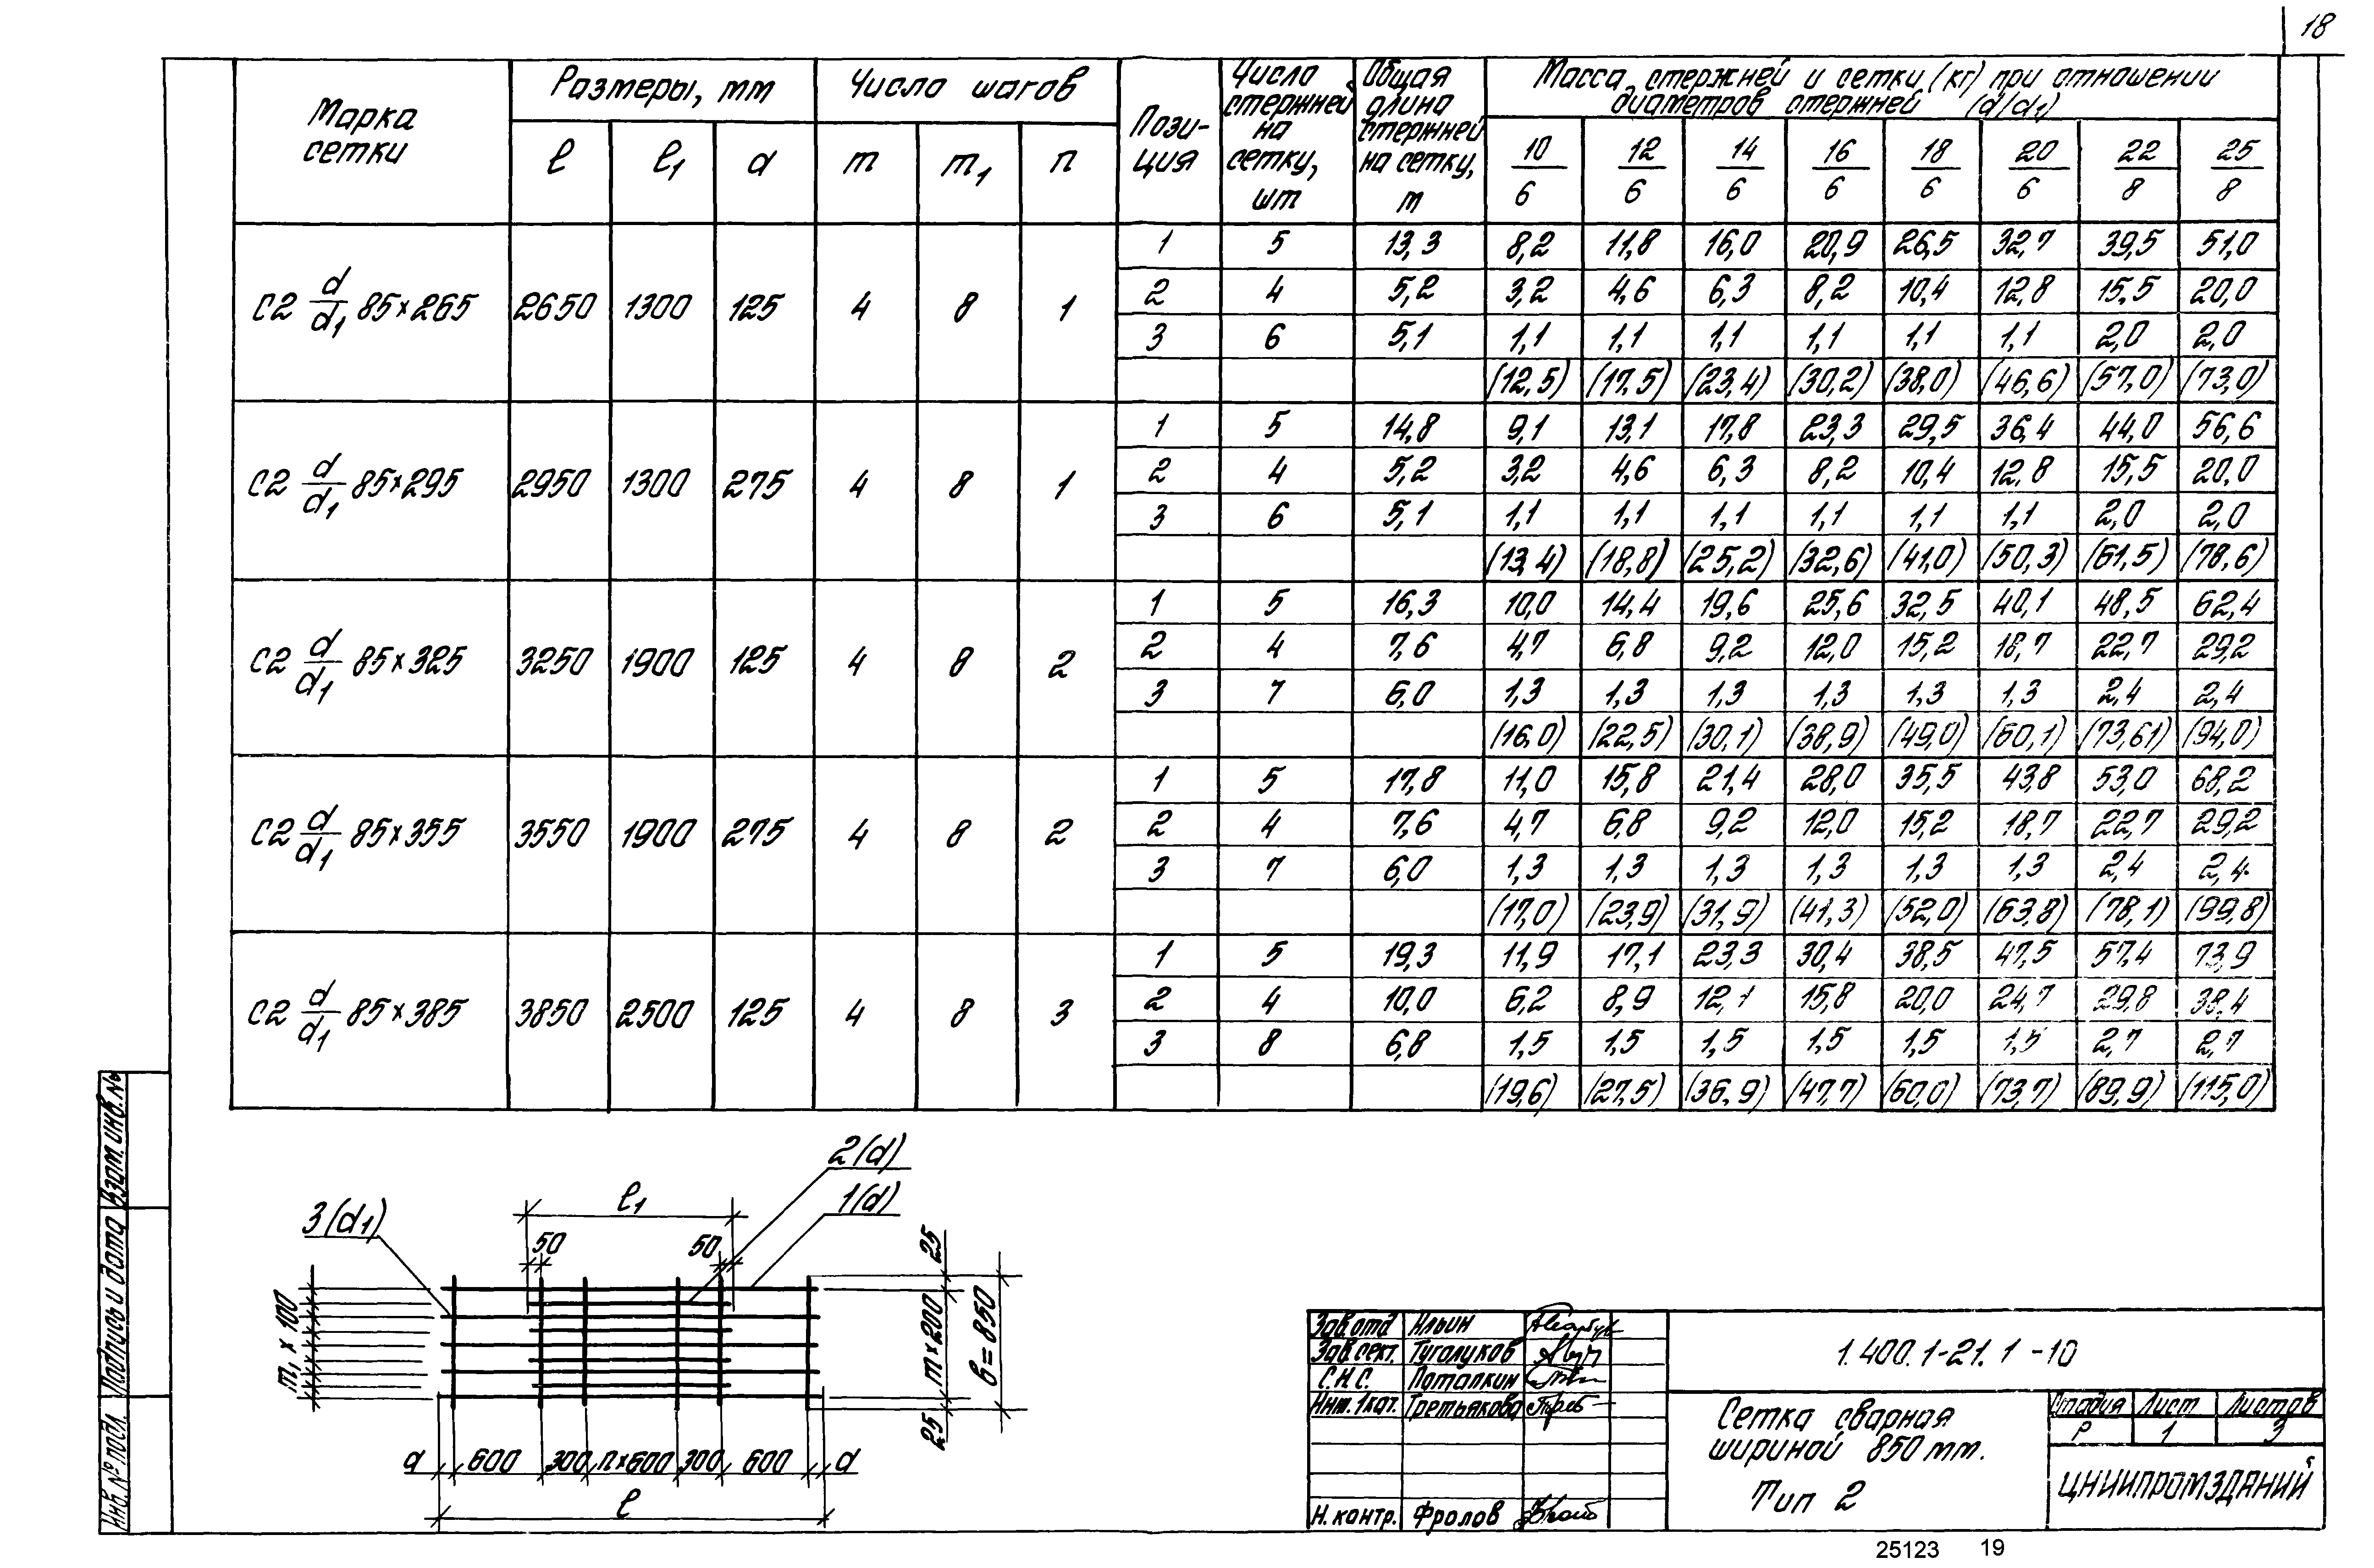 18
Марка сетки | Размеры, мм | Число шагов | Позиция | Число стержней на сетку, шт | Общая длина стержней на сетку, м | Масса стержней и сетки (кг) при отношении диаметров стержней (d/d1)
l | l1 | a | m | m1 | n | 10/6 | 12/6 | 14/6 | 16/6 | 18/6 | 20/6 | 22/8 | 25/8
С2 d/d1 85×265 | 2650 | 1300 | 125 | 4 | 8 | 1
1 | 5 | 13,3 | 8,2 | 11,8 | 16,0 | 20,9 | 26,5 | 32,7 | 39,5 | 51,0
2 | 4 | 5,2 | 3,2 | 4,6 | 6,3 | 8,2 | 10,4 | 12,8 | 15,5 | 20,0
3 | 6 | 5,1 | 1,1 | 1,1 | 1,1 | 1,1 | 1,1 | 1,1 | 2,0 | 2,0
(12,5) | (17,5) | (23,4) | (30,2) | (38,0) | (46,6) | (57,0) | (73,0)
С2 d/d1 85×295 | 2950 | 1300 | 275 | 4 | 8 | 1
1 | 5 | 14,8 | 9,1 | 13,1 | 17,8 | 23,3 | 29,5 | 36,4 | 44,0 | 56,6
2 | 4 | 5,2 | 3,2 | 4,6 | 6,3 | 8,2 | 10,4 | 12,8 | 15,5 | 20,0
3 | 6 | 5,1 | 1,1 | 1,1 | 1,1 | 1,1 | 1,1 | 1,1 | 2,0 | 2,0
(13,4) | (18,8) | (25,2) | (32,6) | (41,0) | (50,3) | (61,5) | (78,6)
С2 d/d1 85×325 | 3250 | 1900 | 125 | 4 | 8 | 2
1 | 5 | 16,3 | 10,0 | 14,4 | 19,6 | 25,6 | 32,5 | 40,1 | 48,5 | 62,4
2 | 4 | 7,6 | 4,7 | 6,8 | 9,2 | 12,0 | 15,2 | 18,7 | 22,7 | 29,2
3 | 7 | 6,0 | 1,3 | 1,3 | 1,3 | 1,3 | 1,3 | 1,3 | 2,4 | 2,4
(16,0) | (22,5) | (30,1) | (38,9) | (49,0) | (60,1) | (73,61) | (94,0)
С2 d/d1 85×355 | 3550 | 1900 | 275 | 4 | 8 | 2
1 | 5 | 17,8 | 11,0 | 15,8 | 21,4 | 28,0 | 35,5 | 43,8 | 53,0 | 68,2
2 | 4 | 7,6 | 4,7 | 6,8 | 9,2 | 12,0 | 15,2 | 18,7 | 22,7 | 29,2
3 | 7 | 6,0 | 1,3 | 1,3 | 1,3 | 1,3 | 1,3 | 1,3 | 2,4 | 2,4
(17,0) | (23,9) | (31,9) | (41,3) | (52,0) | (63,8) | (78,1) | (99,8)
С2 d/d1 85×385 | 3850 | 2500 | 125 | 4 | 8 | 3
1 | 5 | 19,3 | 11,9 | 17,1 | 23,3 | 30,4 | 38,5 | 47,5 | 57,4 | 73,9
2 | 4 | 10,0 | 6,2 | 8,9 | 12,1 | 15,8 | 20,0 | 24,7 | 29,8 | 38,4
3 | 8 | 6,8 | 1,5 | 1,5 | 1,5 | 1,5 | 1,5 | 1,5 | 2,7 | 2,7
(19,6) | (27,5) | (36,9) | (47,7) | (60,0) | (73,7) | (89,9) | (115,0)
Взам. инв. №
Подпись и дата
Инв. № подл.
2(d)
1(d)
3(d1)
l1
50 50
m1 × 100
25
m×200
25
в=850
a 600 300 n×600 300 600 a
l
Зав. отд Ильин
Зав. сект. Туголуков
С.Н.С. Потапкин
Инж. 1 кат. Третьякова
Н. контр. Фролов
1.400.1-21.1 -10
Сетка сварная
шириной 850 мм.
Тип 2
Стадия Лист Листов
Р 1 3
ЦНИИПРОМЗДАНИЙ
25123 19